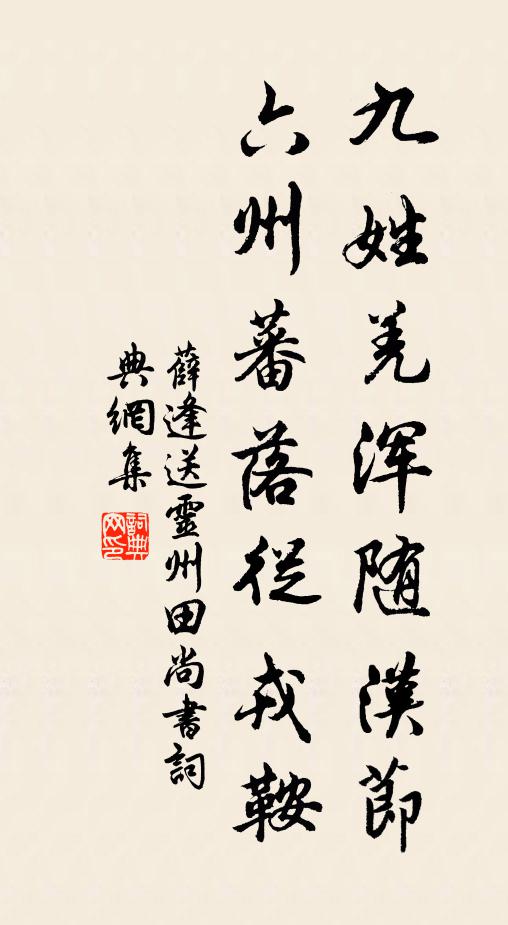 九姓羌浑随漢節
六州蕃落從戎鞍
薛逢送靈州田尚書詞
典網集
詞典網印